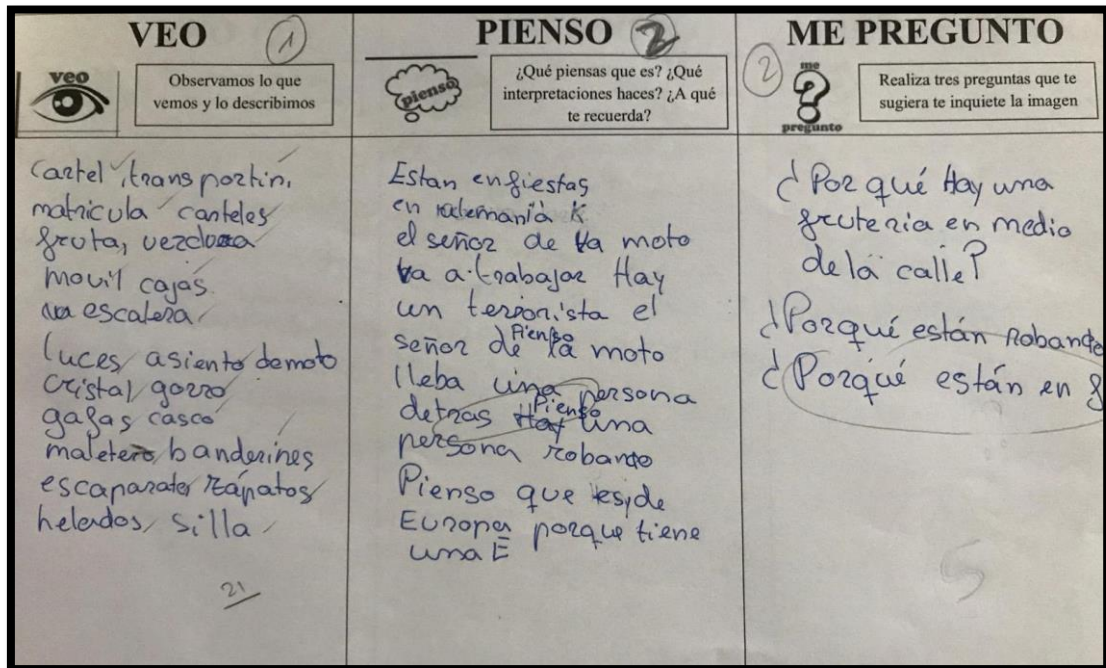 VEO 1
veo
Observamos lo que
vemos y lo describimos
cartel, transportin,
matricula canteles
fruta, verdura
movil cajas
una escalera
luces asiento de moto
cristal gorro
gafas casco
maletero banderines
escaparate, zapatos
helados, silla
21
PIENSO 2
pienso
¿Qué piensas que es? ¿Qué
interpretaciones haces? ¿A qué
te recuerda?
Estan en fiestas
en alemania
el señor de la moto
va a trabajar Hay
un terrorista el
Pienso
señor de la moto
lleba una persona
Pienso
detras Hay una
persona robando
Pienso que es de
Europa porque tiene
una E
ME PREGUNTO
2
me
pregunto
Realiza tres preguntas que te
sugiera te inquiete la imagen
¿Por qué Hay una
fruteria en medio
de la calle?
¿Porqué están Robando
¿Porqué están en f
5